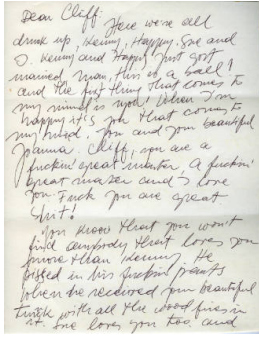 Dear Cliff:
Here we're all
drunk up, Kenny, Happy, Sue and
I. Kenny and Happy just got
married, man, this is a ball!
and the first thing that comes to
my mind is you! When I'm
happy it's you that comes to
my mind. You and your beautiful
Joanna. Cliff, you are a
fuckin' great master. A fuckin'
great master and I love
you. Fuck you are great
shit!
You know that you won't
find anybody that loves you
more than Kenny. He
pissed in his fuckin' pants
when he received your beautiful
with all the wood fires in
it. Sue loves you too. and